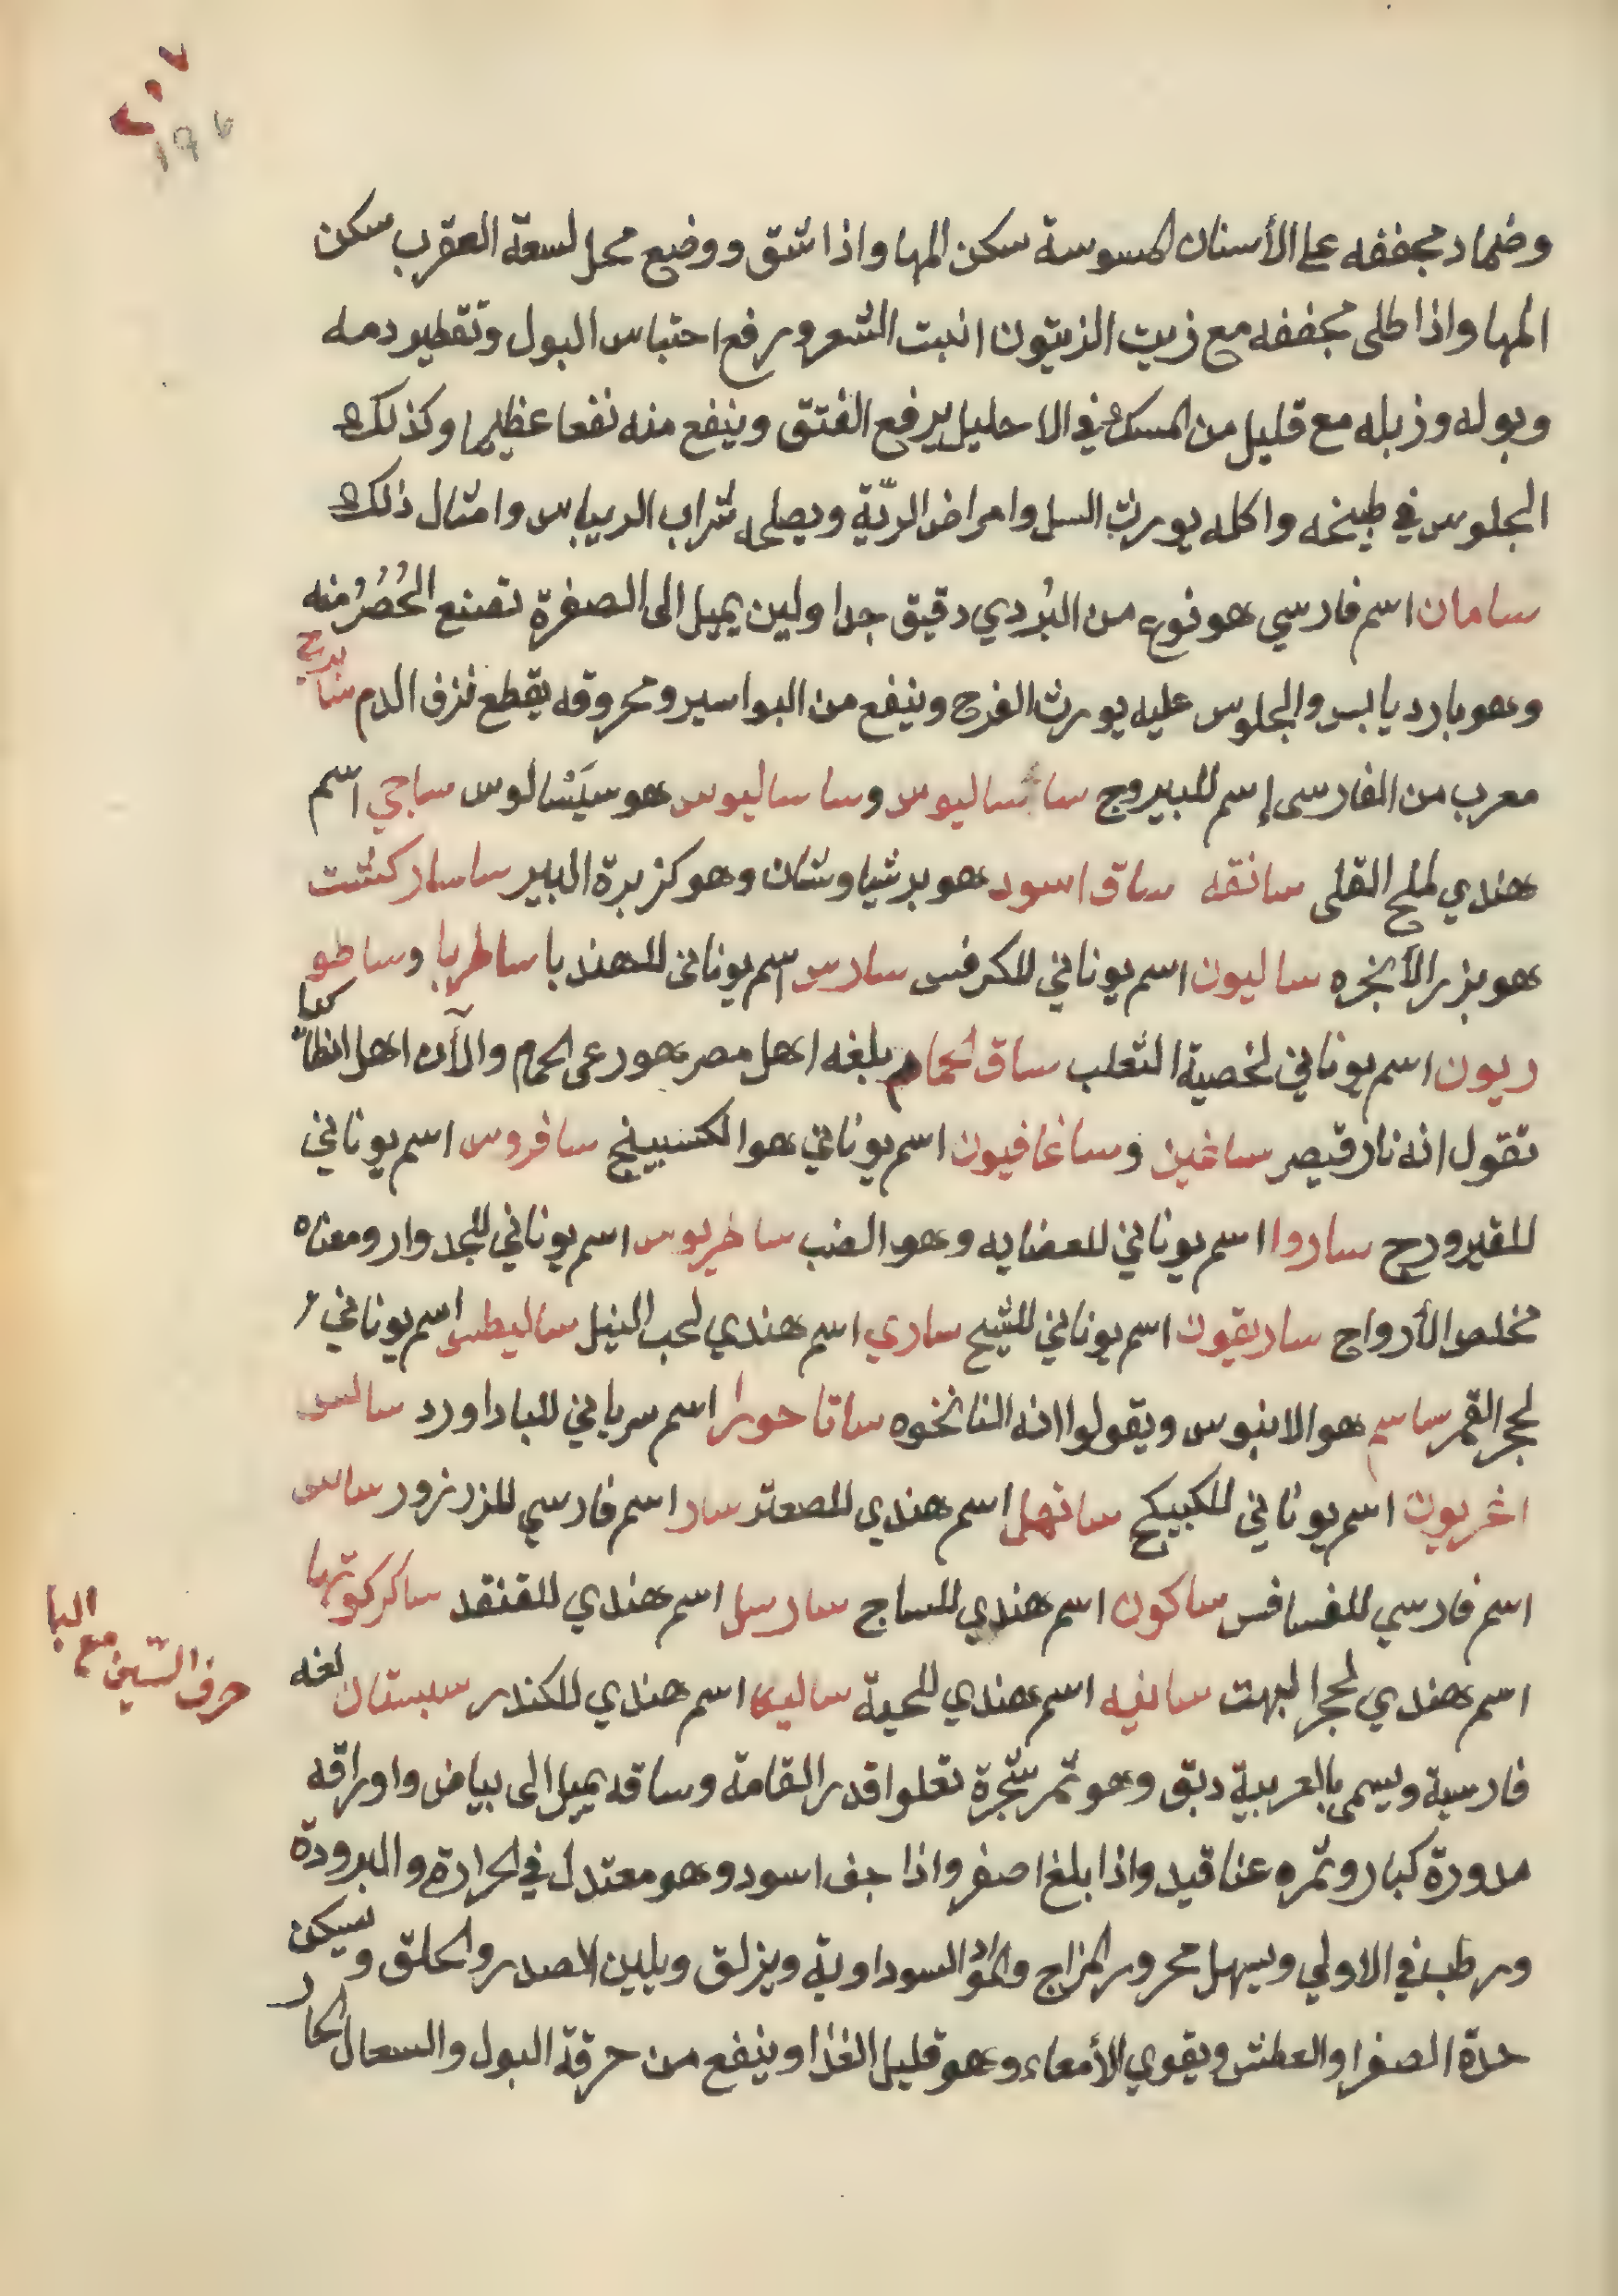 ٢٠٧
١٩٧
وضماد مجففه على الأسنان المسوسة سكن المها واذا شق ووضع محل لسعة العقرب سكن
المها واذا طلى مجففه مع زيت الزيتون انبت الشعر ورفع احتباس البول وتقطير دمه
وبوله وزبله مع قليل من المسك في الاحليل يرفع الفتق وينفع منه نفعا عظيما وكذلك
الجلوس في طبيخه واكله يورث السل وامراض الريّة ويصلحه شراب الريباس وامثال ذلك
سامان اسم فارسي هو نوع من البُردي دقيق جدا ولين يميل الى الصفرة تصنع الحُصُرُ منه
وهو بارد يابس والجلوس عليه يورث الفرح وينفع من البواسير ومحروقه يقطع نزف الدم
معرب من الفارسى إسم للبيروج ساساليوس وساساليوس هو سَيَسْالوس ساجي اسم
هندي لملح القلى سانقه ساق اسود هو برشياوشان وهو كزبرة البير ساسار كشت
هو بزر الأنجره ساليون اسم يوناني للكرفس سارس اسم يوناني للهندبا ساطربا وساطو
ريون اسم يوناني لخصية الثعلب ساق الحمام بلغه اهل مصر هو رعى الحمام والآن اهل انطاكيا
تقول انه نار قيصر ساغين وساغافيون اسم يوناني هو الكسبينج سافروس اسم يوناني
للقيرورح ساروا اسم يوناني للعضايه وهو الضب ساطريوس اسم يوناني للجدوار ومعناه
مخلص الأرواح ساريقون اسم يوناني للشيح ساري اسم هندي لحب النيل ساليطس اسم يوناني
لحجر القمر ساسم هو الابنوس ويقولوا انه النانخوه ساتا حورا اسم سرياني للباداورد سالس
اغريون اسم يوناني للكبيكج سانهل اسم هندي للصعتر سار اسم فارسي للزرزور ساس
اسم فارسي للفسافس ساكون اسم هندي للساج سارسل اسم هندي للقنقد ساكركوتها
اسم هندي لحجر البهت سانيه اسم هندي للحية ساليكا اسم هندي للكندر سبستان لغه
حرف السّين مع البا
فارسية ويسمى بالعربية دبق وهو ثمر شجرة تعلوا قدر القامة وساقه يميل الى بياض واوراقه
مدورة كبار وثمره عناقيد واذا بلغ اصفر واذا جف اسود وهو معتدل في الحرارة والبرودة
ورطب في الاولي ويسهل محرور المزاج والمواد السوداوية ويزلق ويلين الصدر والحلق ويسكن
حدة الصفرا والعطش ويقوي الأمعاء وهو قليل الغذا وينفع من حرقة البول والسعال الحار